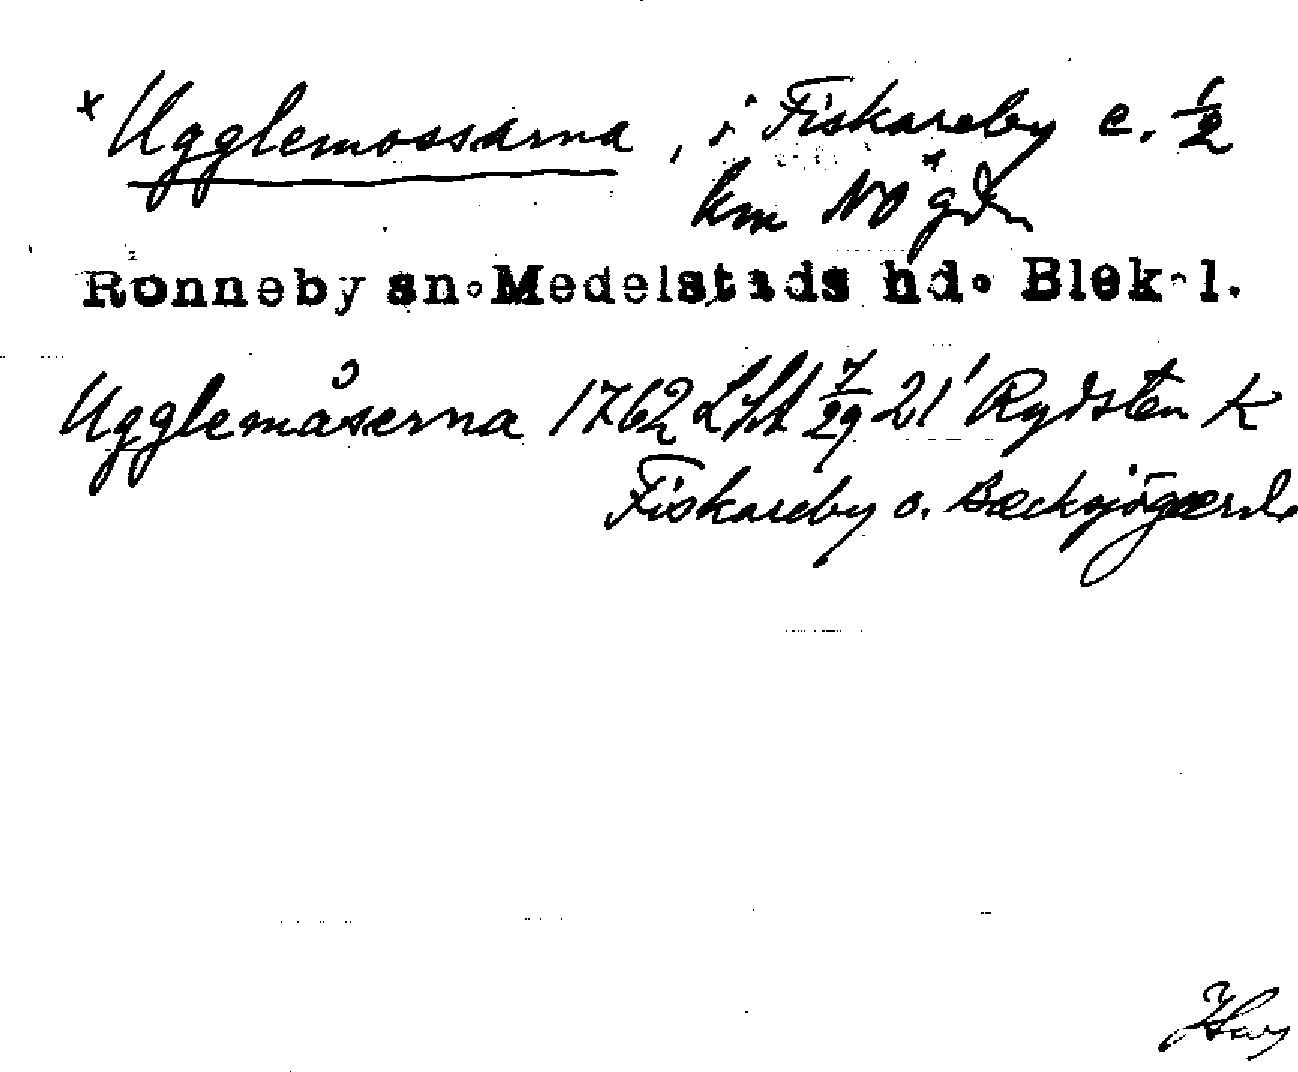 * Ugglemossarna, i Fiskareby c. 1/2
km NÖ gdn
Ronneby sn. Medelstads hd. Blek. l.
Ugglemåserna 1762 Lft 7/29 21' Rydsten K
Fiskareby o.